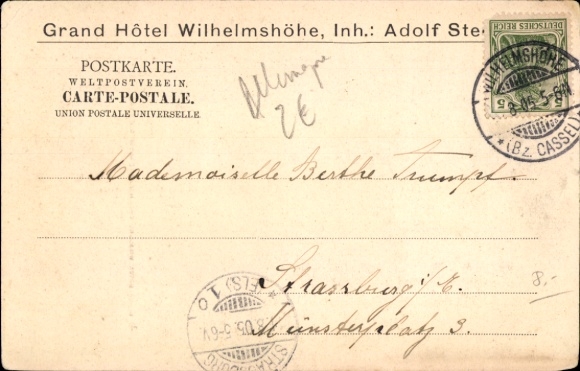 Grand Hôtel Wilhelmshöhe, Inh.: Adolf
POSTKARTE.
WELTPOSTVEREIN.
CARTE-POSTALE.
UNION POSTALE UNIVERSELLE.
Allemagne
2€
DEUTSCHES REICH
5 5
WILHELMSHÖHE
8 05 5-6N
*(Bz. CASSEL)
Mademoiselle Berthe Trumpf.
Strassburg i/E.
8.-
Münsterplatz 3.
STRASSBURG
05. 5-6V
(ELS) 1